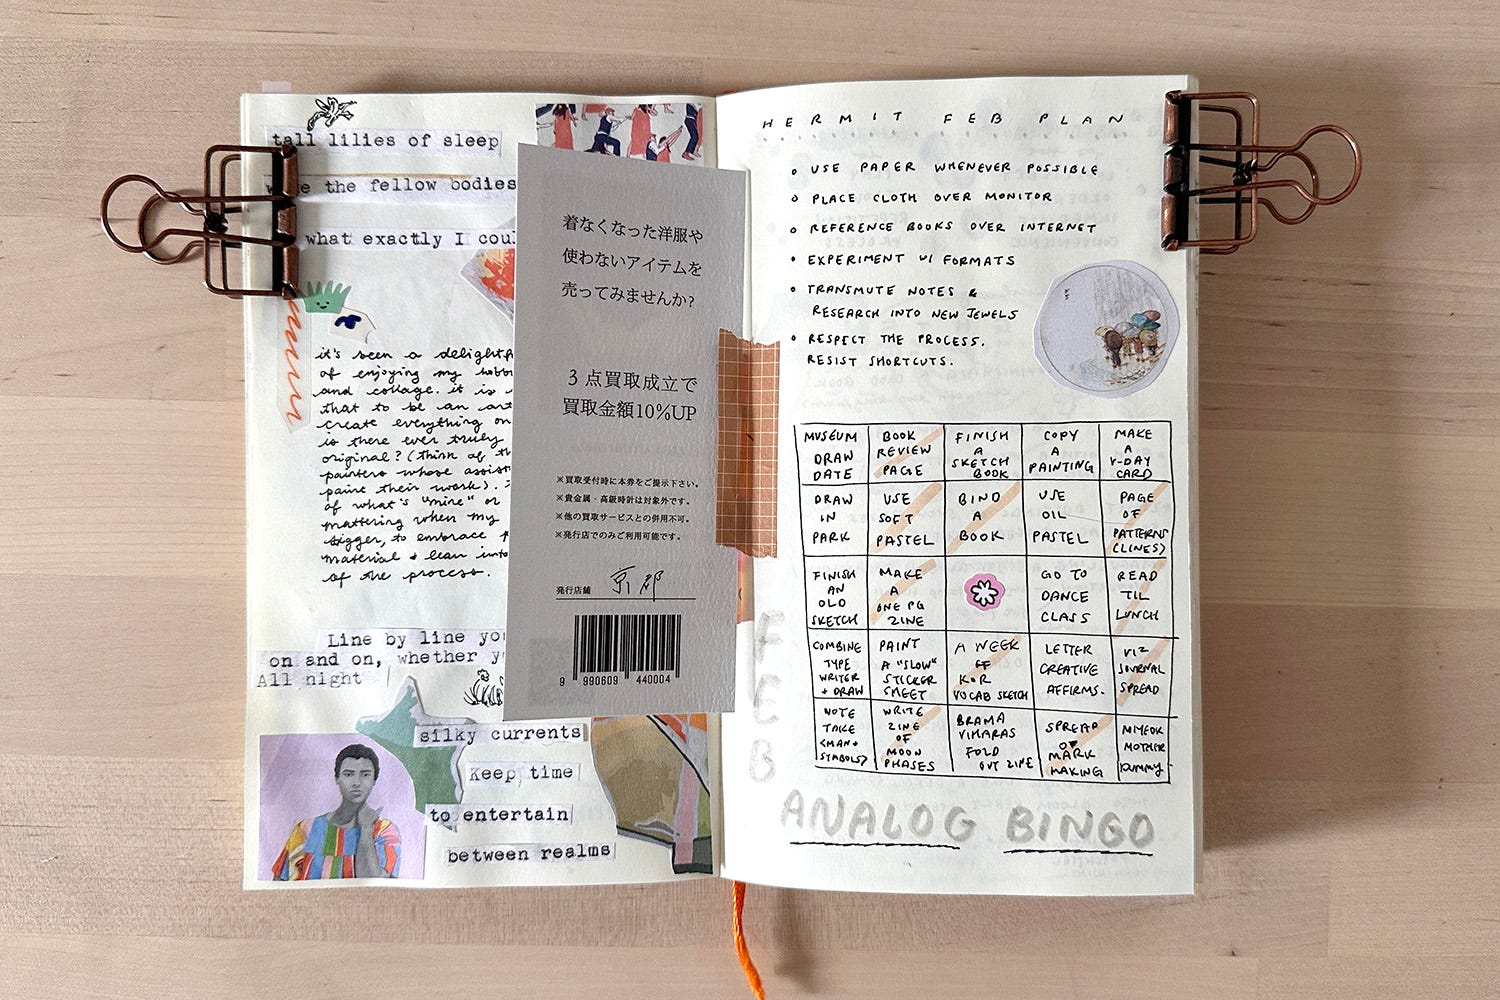 tall lilies of sleep
the fellow bodies
what exactly I coul
it's been a delightf
of enjoying my hobb
and collage. it is
that to be an art
create everything on
is there ever truly
original? (think of th
painters whose assist
paint their work).
of what's "mine" or
mattering when my
bigger, to embrace
material & lean into
of the process.
Line by line yo
on and on, whether y
All night
silky currents
Keep time
to entertain
between realms
着なくなった洋服や
使わないアイテムを
売ってみませんか?
3点買取成立で
買取金額10%UP
※買取受付時に本券をご提示下さい。
※貴金属・高級時計は対象外です。
※他の買取サービスとの併用不可。
※発行店でのみご利用可能です。
発行店舗 京都
9 990609 440004
HERMIT FEB PLAN
USE PAPER WHENEVER POSSIBLE
PLACE CLOTH OVER MONITOR
REFERENCE BOOKS OVER INTERNET
EXPERIMENT W/ FORMATS
TRANSMUTE NOTES &
RESEARCH INTO NEW JEWELS
RESPECT THE PROCESS.
RESIST SHORTCUTS.
MUSEUM
DRAW
DATE
BOOK
REVIEW
PAGE
FINISH
A
SKETCH
BOOK
COPY
A
PAINTING
MAKE
A
V-DAY
CARD
DRAW
IN
PARK
USE
SOFT
PASTEL
BIND
A
BOOK
USE
OIL
PASTEL
PAGE
OF
PATTERNS
(LINES)
FINISH
AN
OLD
SKETCH
MAKE
A
ONE PG
ZINE
GO TO
DANCE
CLASS
READ
TIL
LUNCH
COMBINE
TYPE
WRITER
+ DRAW
PAINT
A "SLOW"
STICKER
SHEET
A WEEK
OF
KOR
VOCAB SKETCH
LETTER
CREATIVE
AFFIRMS.
VIZ
JOURNAL
SPREAD
NOTE
TAKE
(MAN+
SYMBOLS)
WRITE
ZINE
OF
MOON
PHASES
BRAMA
VIHARAS
FOLD
OUT ZINE
SPREAD
OF
MARK
MAKING
MIYEOK
MOTHER
DUMMY
FEB
ANALOG BINGO